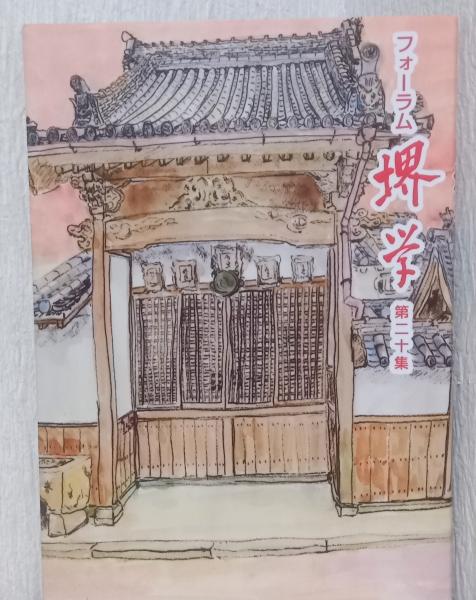 フォーラム
堺学
第二十集